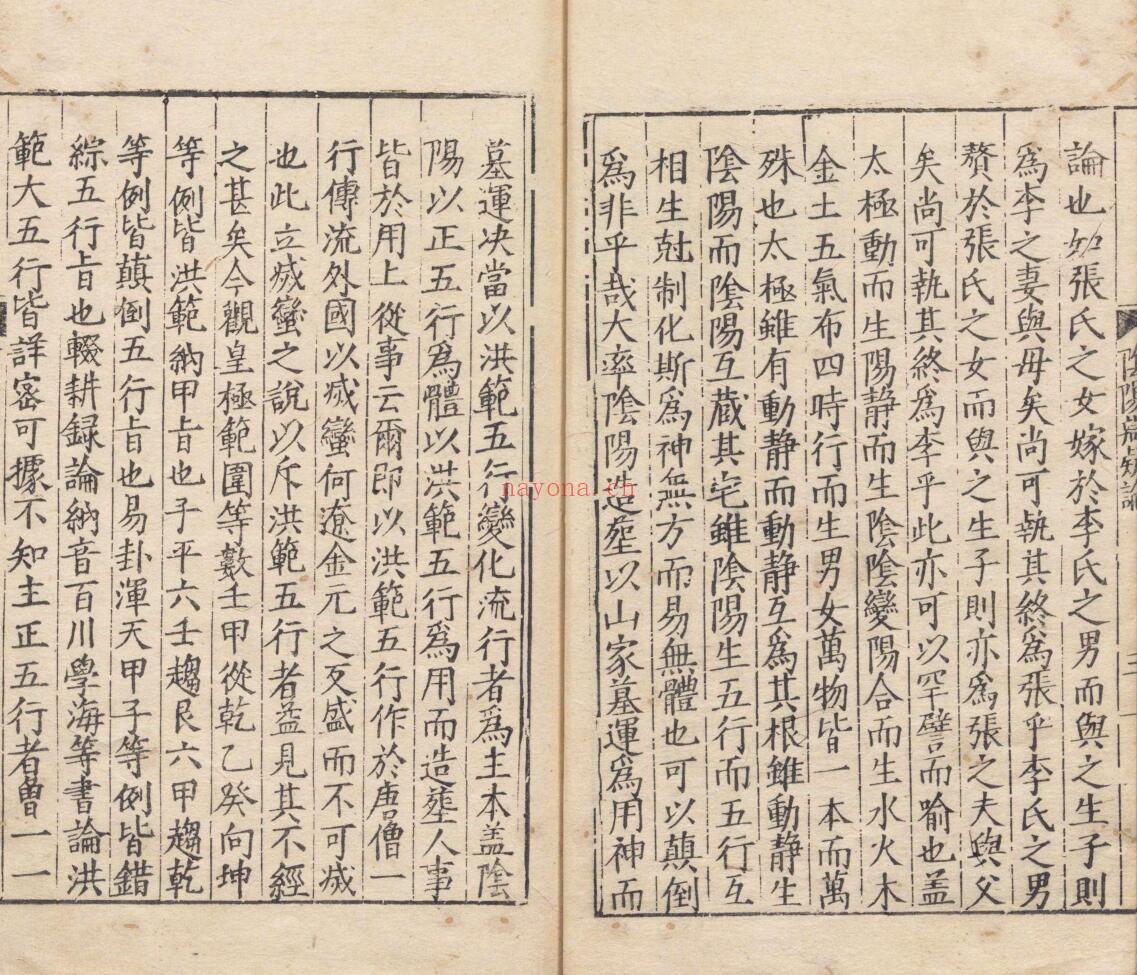 陰陽㝎疑論
三
論也如張氏之女嫁於李氏之男而與之生子則
爲李之妻與母矣尚可執其終爲張乎李氏之男
贅於張氏之女而與之生子則亦爲張之夫與父
矣尚可執其終爲李乎此亦可以罕譬而喻也盖
太極動而生陽静而生陰陰變陽合而生水火木
金土五氣布四時行而生男女萬物皆一本而萬
殊也太極雖有動静而動静互爲其根雖動静生
陰陽而陰陽互蔵其宅雖陰陽生五行而五行互
相生尅制化斯爲神無方而易無體也可以顛倒
爲非乎哉大率陰陽造塟以山家墓運爲用神而
墓運决當以洪範五行變化流行者爲主本盖陰
陽以正五行爲體以洪範五行爲用而造塟人事
皆於用上從事云爾即以洪範五行作於唐僧一
行傳流外國以㓕蠻何遼金元之叐盛而不可㓕
也此立㓕蠻之說以斥洪範五行者益見其不經
之甚矣今觀皇極範圍等數壬甲從乾乙癸向坤
等例皆洪範納甲旨也子平六壬趨艮六甲趨乾
等例皆顛倒五行旨也易卦渾天甲子等例皆錯
綜五行旨也輟耕録論納音百川學海等書論洪
範大五行皆詳宻可據不知主正五行者曽一一
nayona.cn